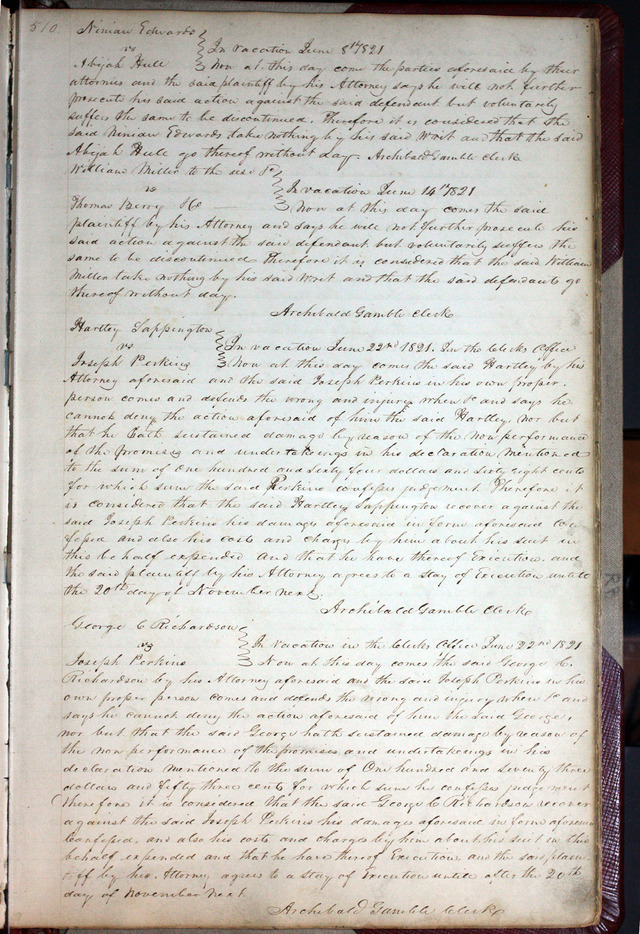 510
Ninian Edwards
vs In vacation June 8th 1821
Abijah Hull Now at this day come the parties aforesaid by their
attornies and the said plaintiff by his Attorney says he will not further
prosecute his said action against the said defendant but voluntarily
suffers the same to be discontinued. Therefore it is considered that the
said Ninian Edwards take nothing by his said writ and that the said
Abijah Hull go thereof without day. Archibald Gamble Clerk
William Miller to the use &c
vs In vacation June 14th 1821
Thomas Berry &c Now at this day comes the said
plaintiff by his Attorney and says he will not further prosecute his
said action against the said defendant but voluntarily suffers the
same to be discontinued Therefore it is considered that the said William
Miller take nothing by his said Writ and that the said defendants go
thereof without day.
Archibald Gamble Clerk
Hartley Sappington
vs In vacation June 22nd 1821. In the Clerks Office
Joseph Perkins Now at this day comes the said Hartley by his
Attorney aforesaid and the said Joseph Perkins in his own proper
person comes and defends the wrong and injury when &c and says he
cannot deny the action aforesaid of him the said Hartley, nor but
that he hath sustained damage by reason of the non performance
of the promises and undertakings in his declaration mentioned
to the sum of One hundred and sixty four dollars and sixty eight cents
for which sum the said Perkins confesses judgement Therefore it
is considered that the said Hartley Sappington recover against the
said Joseph Perkins his damages aforesaid in form aforesaid con
fessed and also his costs and charges by him about his suit in
this behalf expended and that he have thereof Execution. and
the said plaintiff by his Attorney agrees to a stay of Execution until
the 20th day of November next.
Archibald Gamble Clerk
George C Richardson
vs In vacation in the Clerks Office June 22nd 1821
Joseph Perkins Now at this day comes the said George C.
Richardson by his Attorney aforesaid and the said Joseph Perkins in his
own proper person comes and defends the wrong and injury when &c and
says he cannot deny the action aforesaid of him the said George,
nor but that the said George hath sustained damage by reason of
the non performance of the promises and undertakings in his
declaration mentioned to the sum of One hundred and seventy three
dollars and fifty three cents for which sum he confesses judgement
Therefore it is considered that the said George C Richardson recover
against the said Joseph Perkins his damages aforesaid in form aforesaid
Confessed, and also his costs and charges by him about his suit in this
behalf expended and that he have thereof Execution and the said plain
tiff by his Attorney agrees to a stay of Execution until after the 20th
day of November Next
Archibald Gamble Clerk